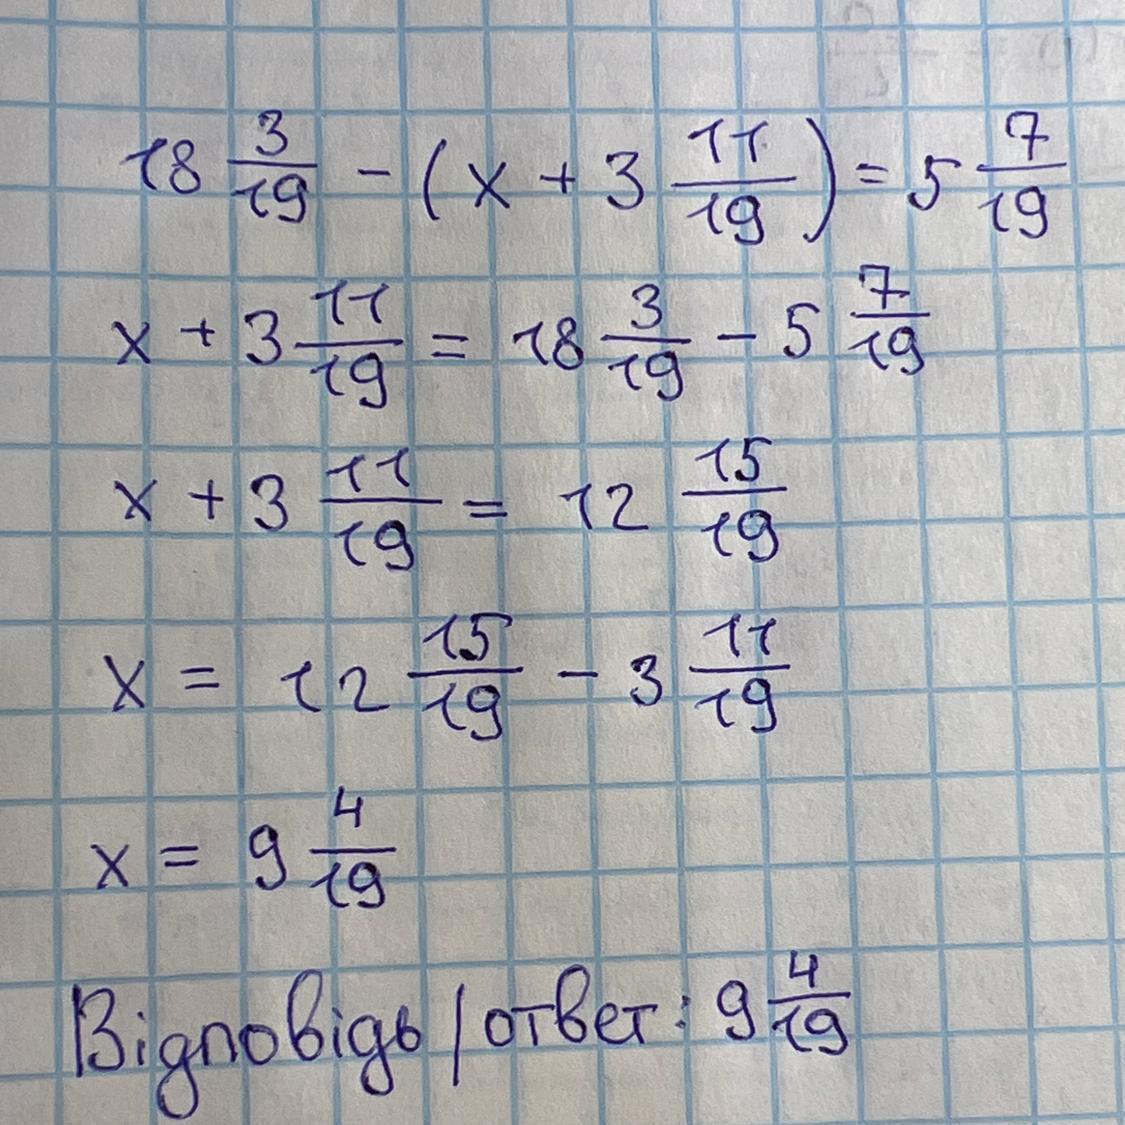 18 3/19 - (x + 3 11/19) = 5 7/19
x + 3 11/19 = 18 3/19 - 5 7/19
x + 3 11/19 = 12 15/19
x = 12 15/19 - 3 11/19
x = 9 4/19
Відповідь/ответ: 9 4/19